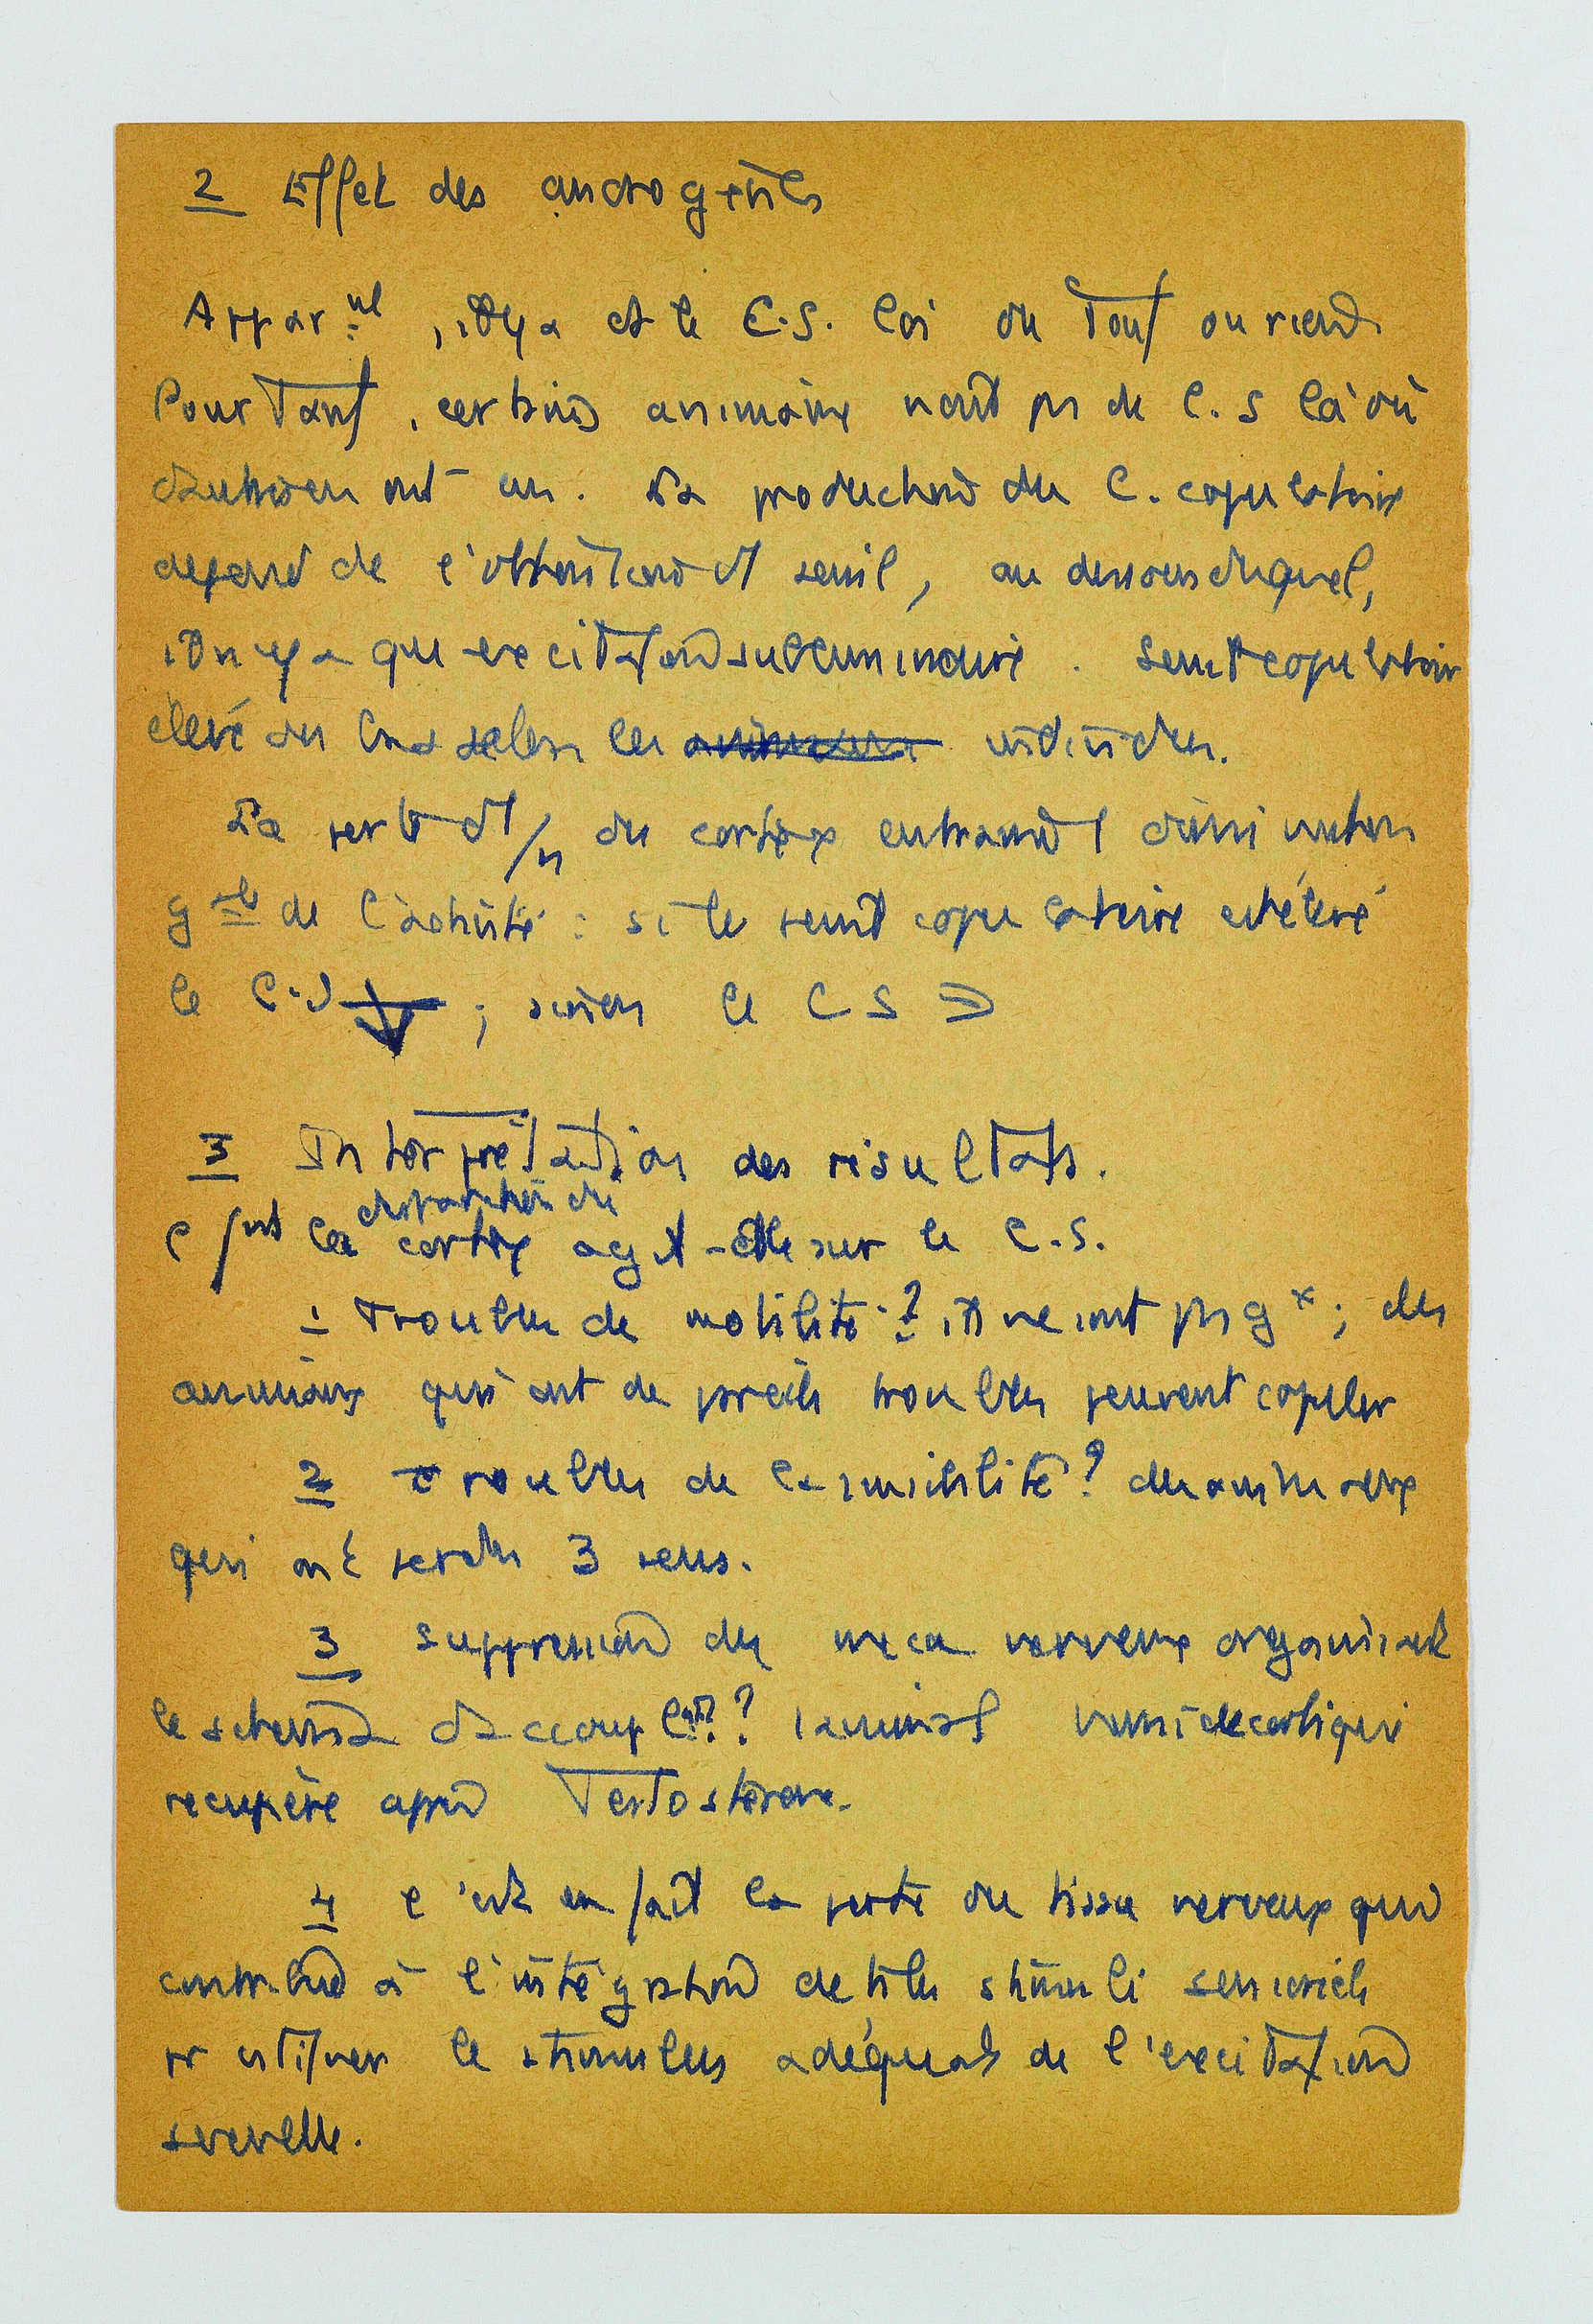 2 Effet des androgènes
Appar.nt, il y a ds le C.S. loi du Tout ou rien.
Pourtant, certains animaux n'ont pas de C.S là où
d'autres en ont un. La production du C. copulatoire
dépend de l'obtention d'1 seuil, au dessous duquel,
il n'y a que excitation subliminaire. Seuil copulatoire
élevé ou bas selon les individus.
La perte d'1/n du cortex entraîne 1 diminution
gale de l'activité : si le seuil copulatoire est élevé
le C.S ↓ ; sinon le C S =
3 Interprétation des résultats.
disparition du
la cortex agit-elle sur le C.S.
1 Troubles de motilité ? ils ne sont pas gx ; des
animaux qui ont de pareils troubles peuvent copuler
2 troubles de la sensibilité ? des animaux
qui ont perdu 3 sens.
3 suppression du méca nerveux organisant
le schéma d'accouplent ? ? l'animal semidecortiqué
récupère après Testostérone.
4 c'est en fait la perte du tissu nerveux qui
contribue à l'intégration de tels stimuli sensoriels
pr activer le stimulus adéquat de l'excitation
sexuelle.